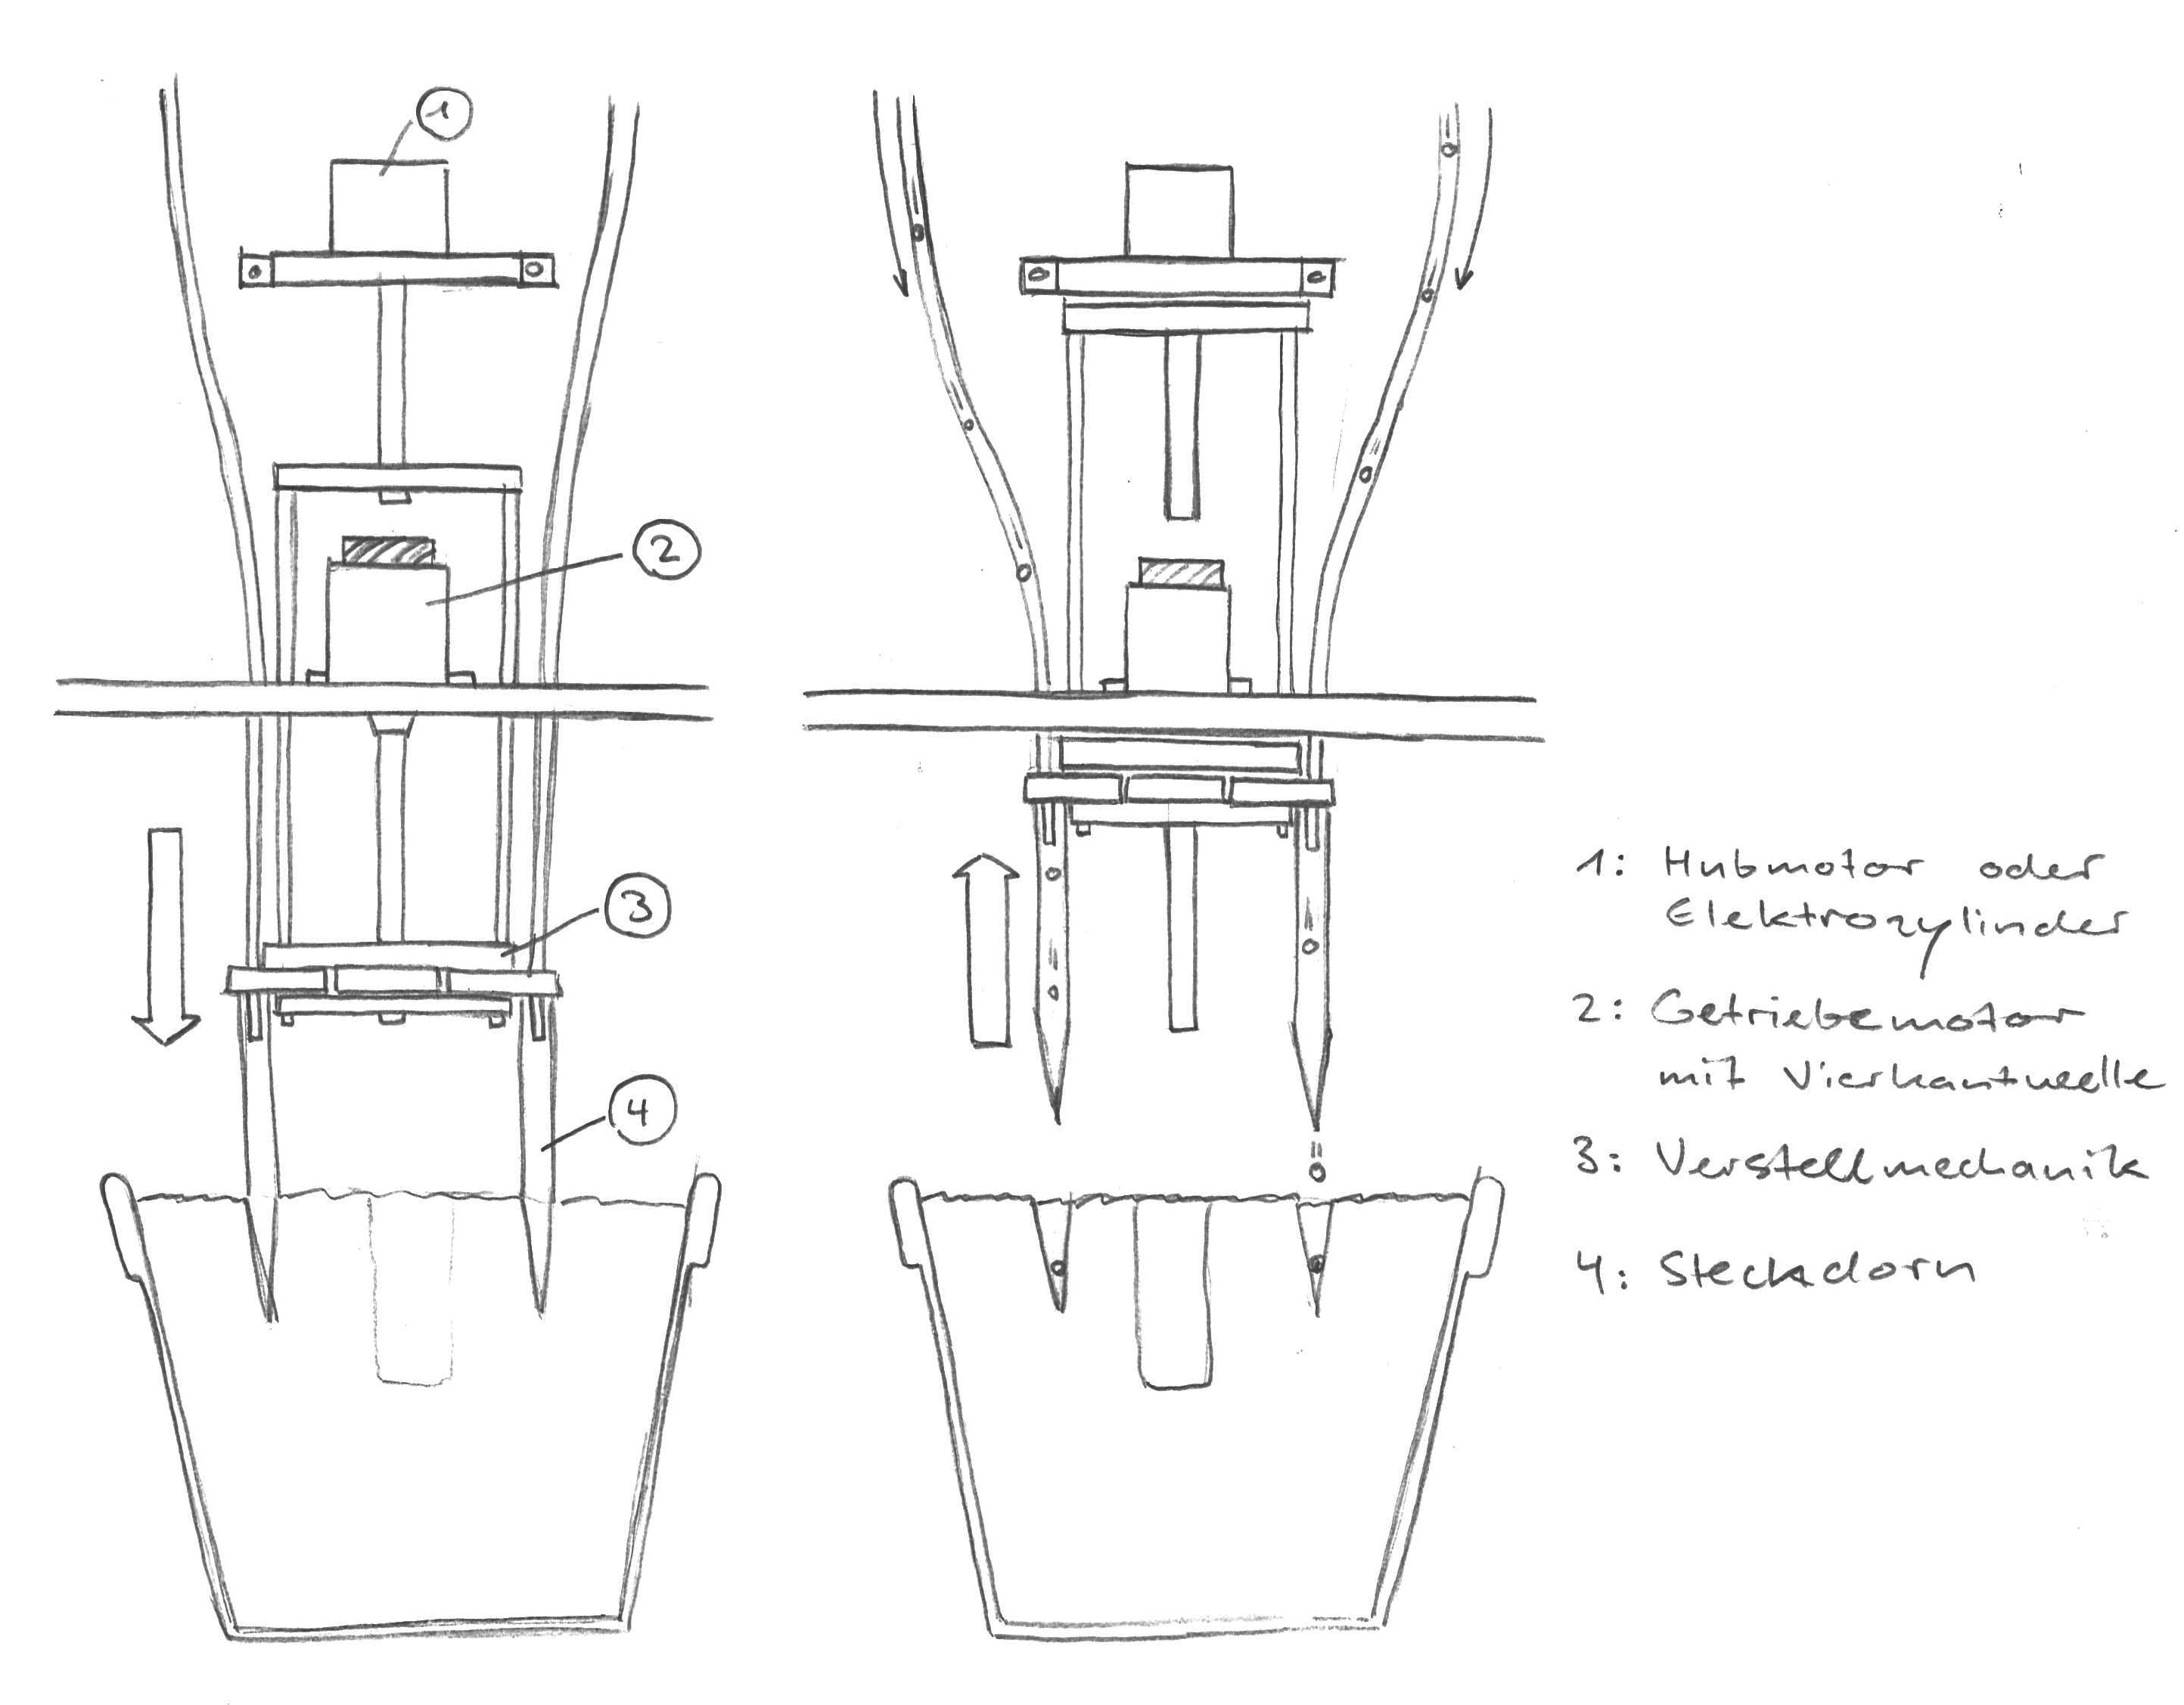 1
2
3
4
1: Hubmotor oder
Elektrozylinder
2: Getriebemotor
mit Vierkantwelle
3: Verstellmechanik
4: Steckdorn